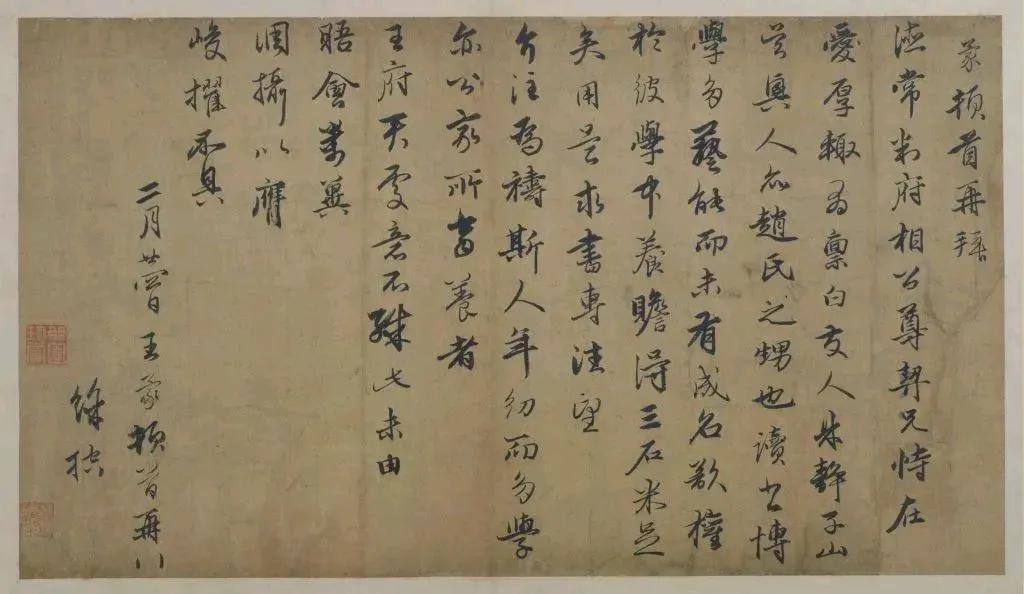 蒙頓首再拜
德常判府相公尊契兄恃在
愛厚輒為稟白友人林靜子山
吳興人亦趙氏之甥也讀書博
學多藝能而未有成名欲權
於彼學中養贍得三石米足
矣用是求書專注望
介注為禱斯人年幼而多學
亦公家所當養者
王府天處意不殊此未由
晤會萬冀
調攝以膺
峻擢不具
二月廿四日王蒙頓首再拜